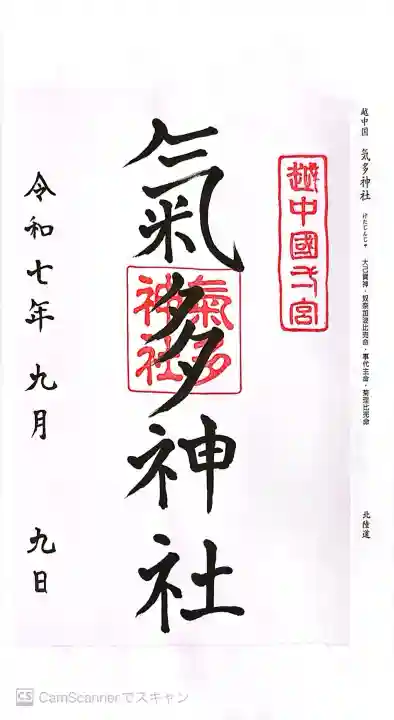 越中国 気多神社 けたじんじゃ 大己貴神・奴奈加波比売命・事代主命・菊理比売命 北陸道
越中國一宮
氣多神社
氣多
神社
令和七年 九月 九日
CS CamScannerでスキャン